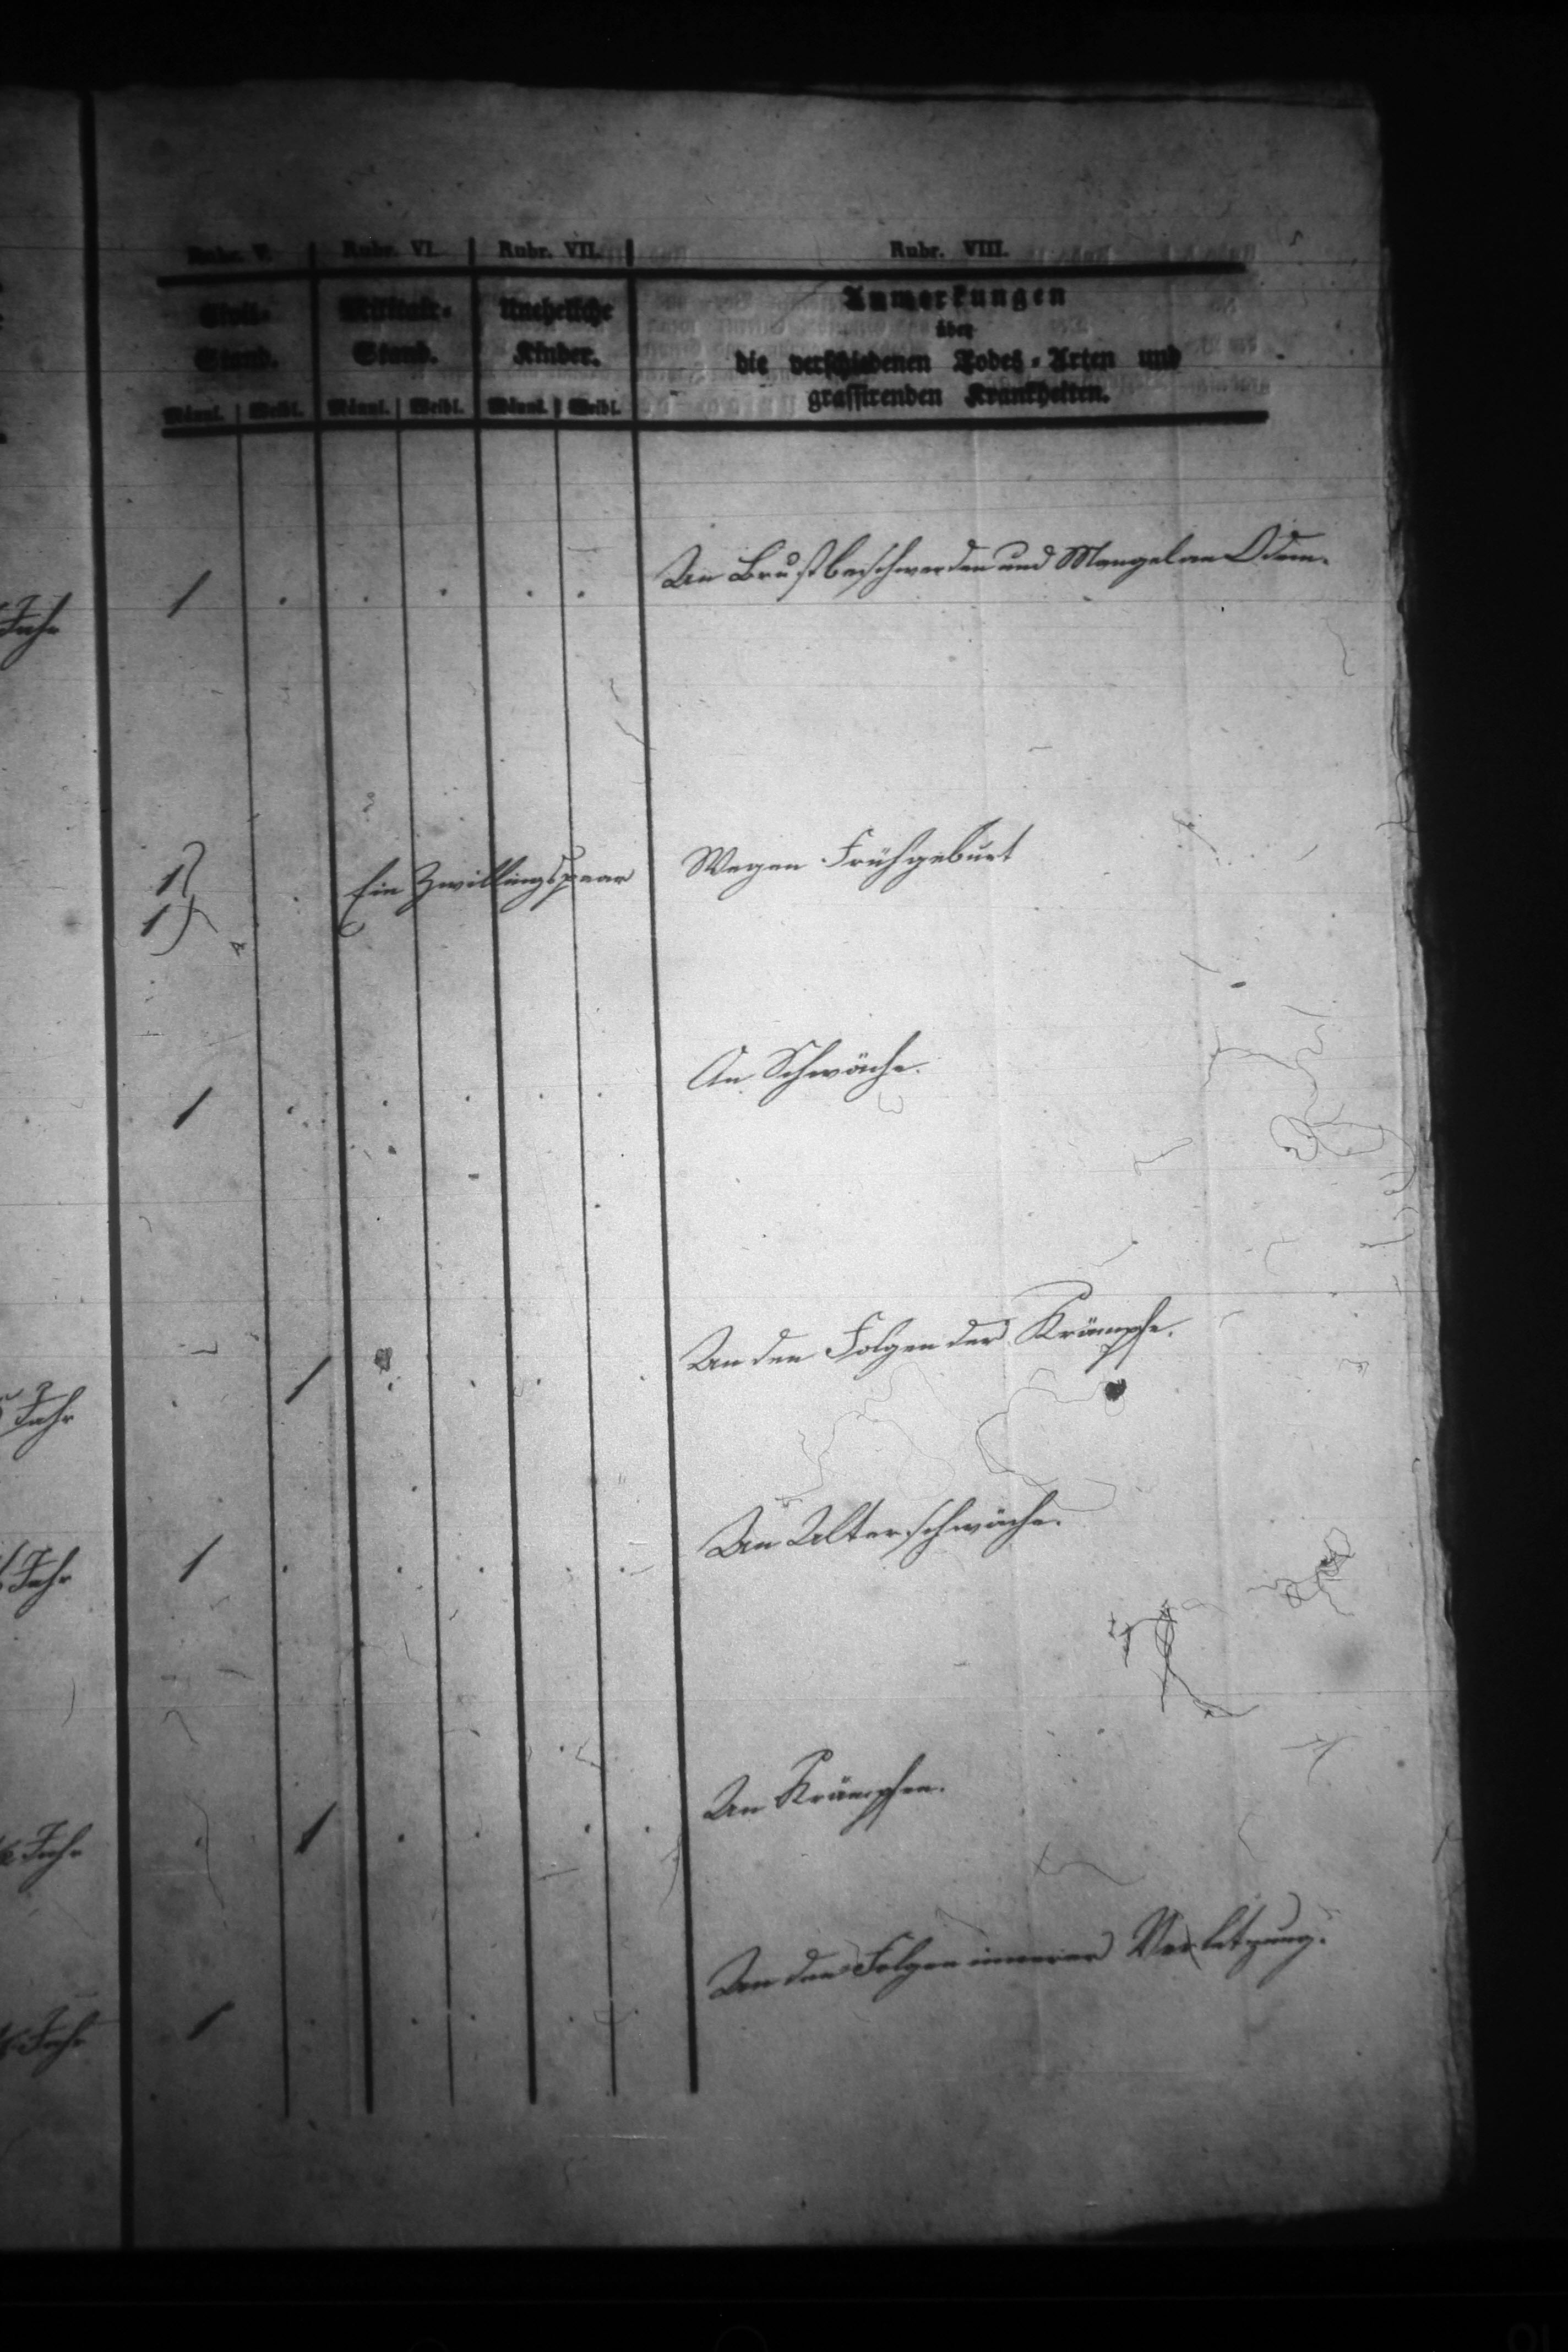 Rubr. V. Rubr. VI. Rubr. VII. Rubr. VIII.
Civil- Militair- Uneheliche Anmerkungen
über
Stand. Stand. Kinder. die verschiedenen Todes-Arten und
grassirenden Krankheiten.
Männl. Weibl. Männl. Weibl. Männl. Weibl.
An Brustbeschwerden und Mangel an Odem.
Jahr 1 . . . . .
1 Ein Zwillingspaar Wegen Frühgeburt
1
An Schwäche.
1 . . . . .
An den Folgen der Krämpfe.
Jahr . 1 . . . .
An Alterschwäche.
Jahr 1 . . . . .
An Krämpfen.
Jahr . 1 . . . .
An den Folgen innerer Verletzung.
Jahr 1 . . . .